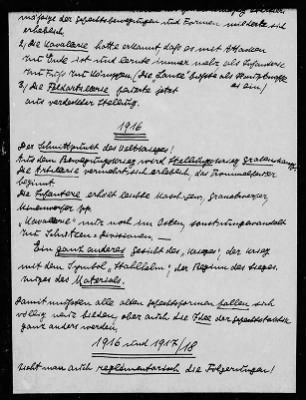 infolge der Gefechtsbewegungen und Formen minderte sich
erheblich.
2) Die Kavallerie hatte erkannt, dass es mit Attacken
zu Ende ist und lernte immer mehr als Infanterie
zu Fuß zu kämpfen (Die Lanze
es ein)
3) Die Feldartillerie feuerte jetzt
aus verdeckter Stellung.
1916
Der Schnittpunkt des Weltkrieges!
Aus dem Bewegungskrieg wird Stellungskrieg
Die Artillerie vermehrt sich erheblich, das Trommelfeuer
beginnt
Die Infanterie erhält leichte Maschinen, Granatwerfer,
Minenwerfer pp.
"Kavallerie" nur noch im Osten, sonst umgewandelt
zu Schützen-Divisionen.
Ein ganz anderes Gesicht des "Krieges", der Krieg
mit dem Symbol "Stahlhelm", der Beginn des Sieges
zuges des Materials.
Damit mußten alle alten Gefechtsformen fallen, sich
völlig neue bilden, aber auch die Idee der Gefechtstaktik
ganz anders werden.
1916 und 1917/18
zieht man auch reglementarisch die Folgerungen!